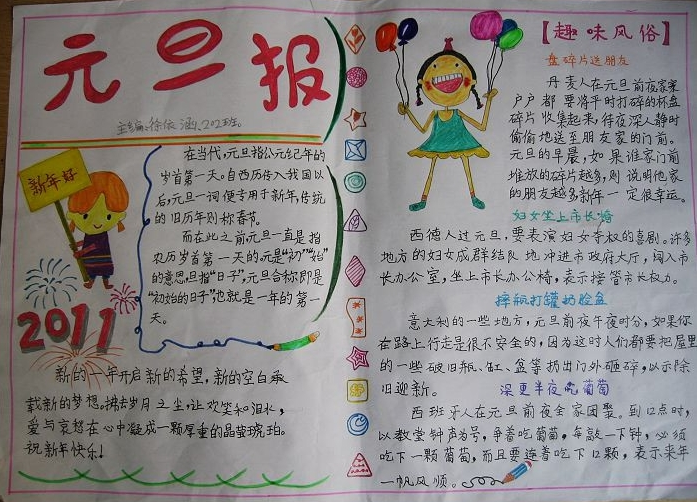 元旦报
主编:徐依涵、202班。
新年好
在当代,元旦指公元纪年的
岁首第一天。自西历传入我国以
后,元旦一词便专用于新年,传统
的旧历年则称春节。
而在此之前,元旦一直是指
农历岁首第一天的。元是"初""始"
的意思,旦指"日子",元旦合称即是
"初始的日子"也就是一年的第一
天。
2011
新的一年开启新的希望,新的空白承
载新的梦想。拂去岁月之尘,让欢笑和泪水,
爱与哀愁在心中凝成一颗厚重的晶莹琥珀。
祝新年快乐!
【趣味风俗】
盘碎片送朋友
丹麦人在元旦前夜家家
户户都要将平时打碎的杯盘
碎片收集起来,待夜深人静时
偷偷地送至朋友家的门前。
元旦的早晨,如果谁家门前
堆放的碎片越多,则说明他家
的朋友越多新年一定很幸运。
妇女坐上市长椅
西德人过元旦,要表演妇女夺权的喜剧。许多
地方的妇女成群结队地冲进市政府大厅,闯入市
长办公室,坐上市长办公椅,表示接管市长权力。
摔瓶打罐扔脸盆
意大利的一些地方,元旦前夜午夜时分,如果你
在路上行走是很不安全的,因为这时人们都要把屋里
的一些破旧瓶、缸、盆等扔出门外砸碎,以示除
旧迎新。
深更半夜吃葡萄
西班牙人在元旦前夜全家团聚。到12点时,
以教堂钟声为号,争着吃葡萄,每敲一下钟,必须
吃下一颗葡萄,而且要连着吃下12颗,表示来年
一帆风顺。